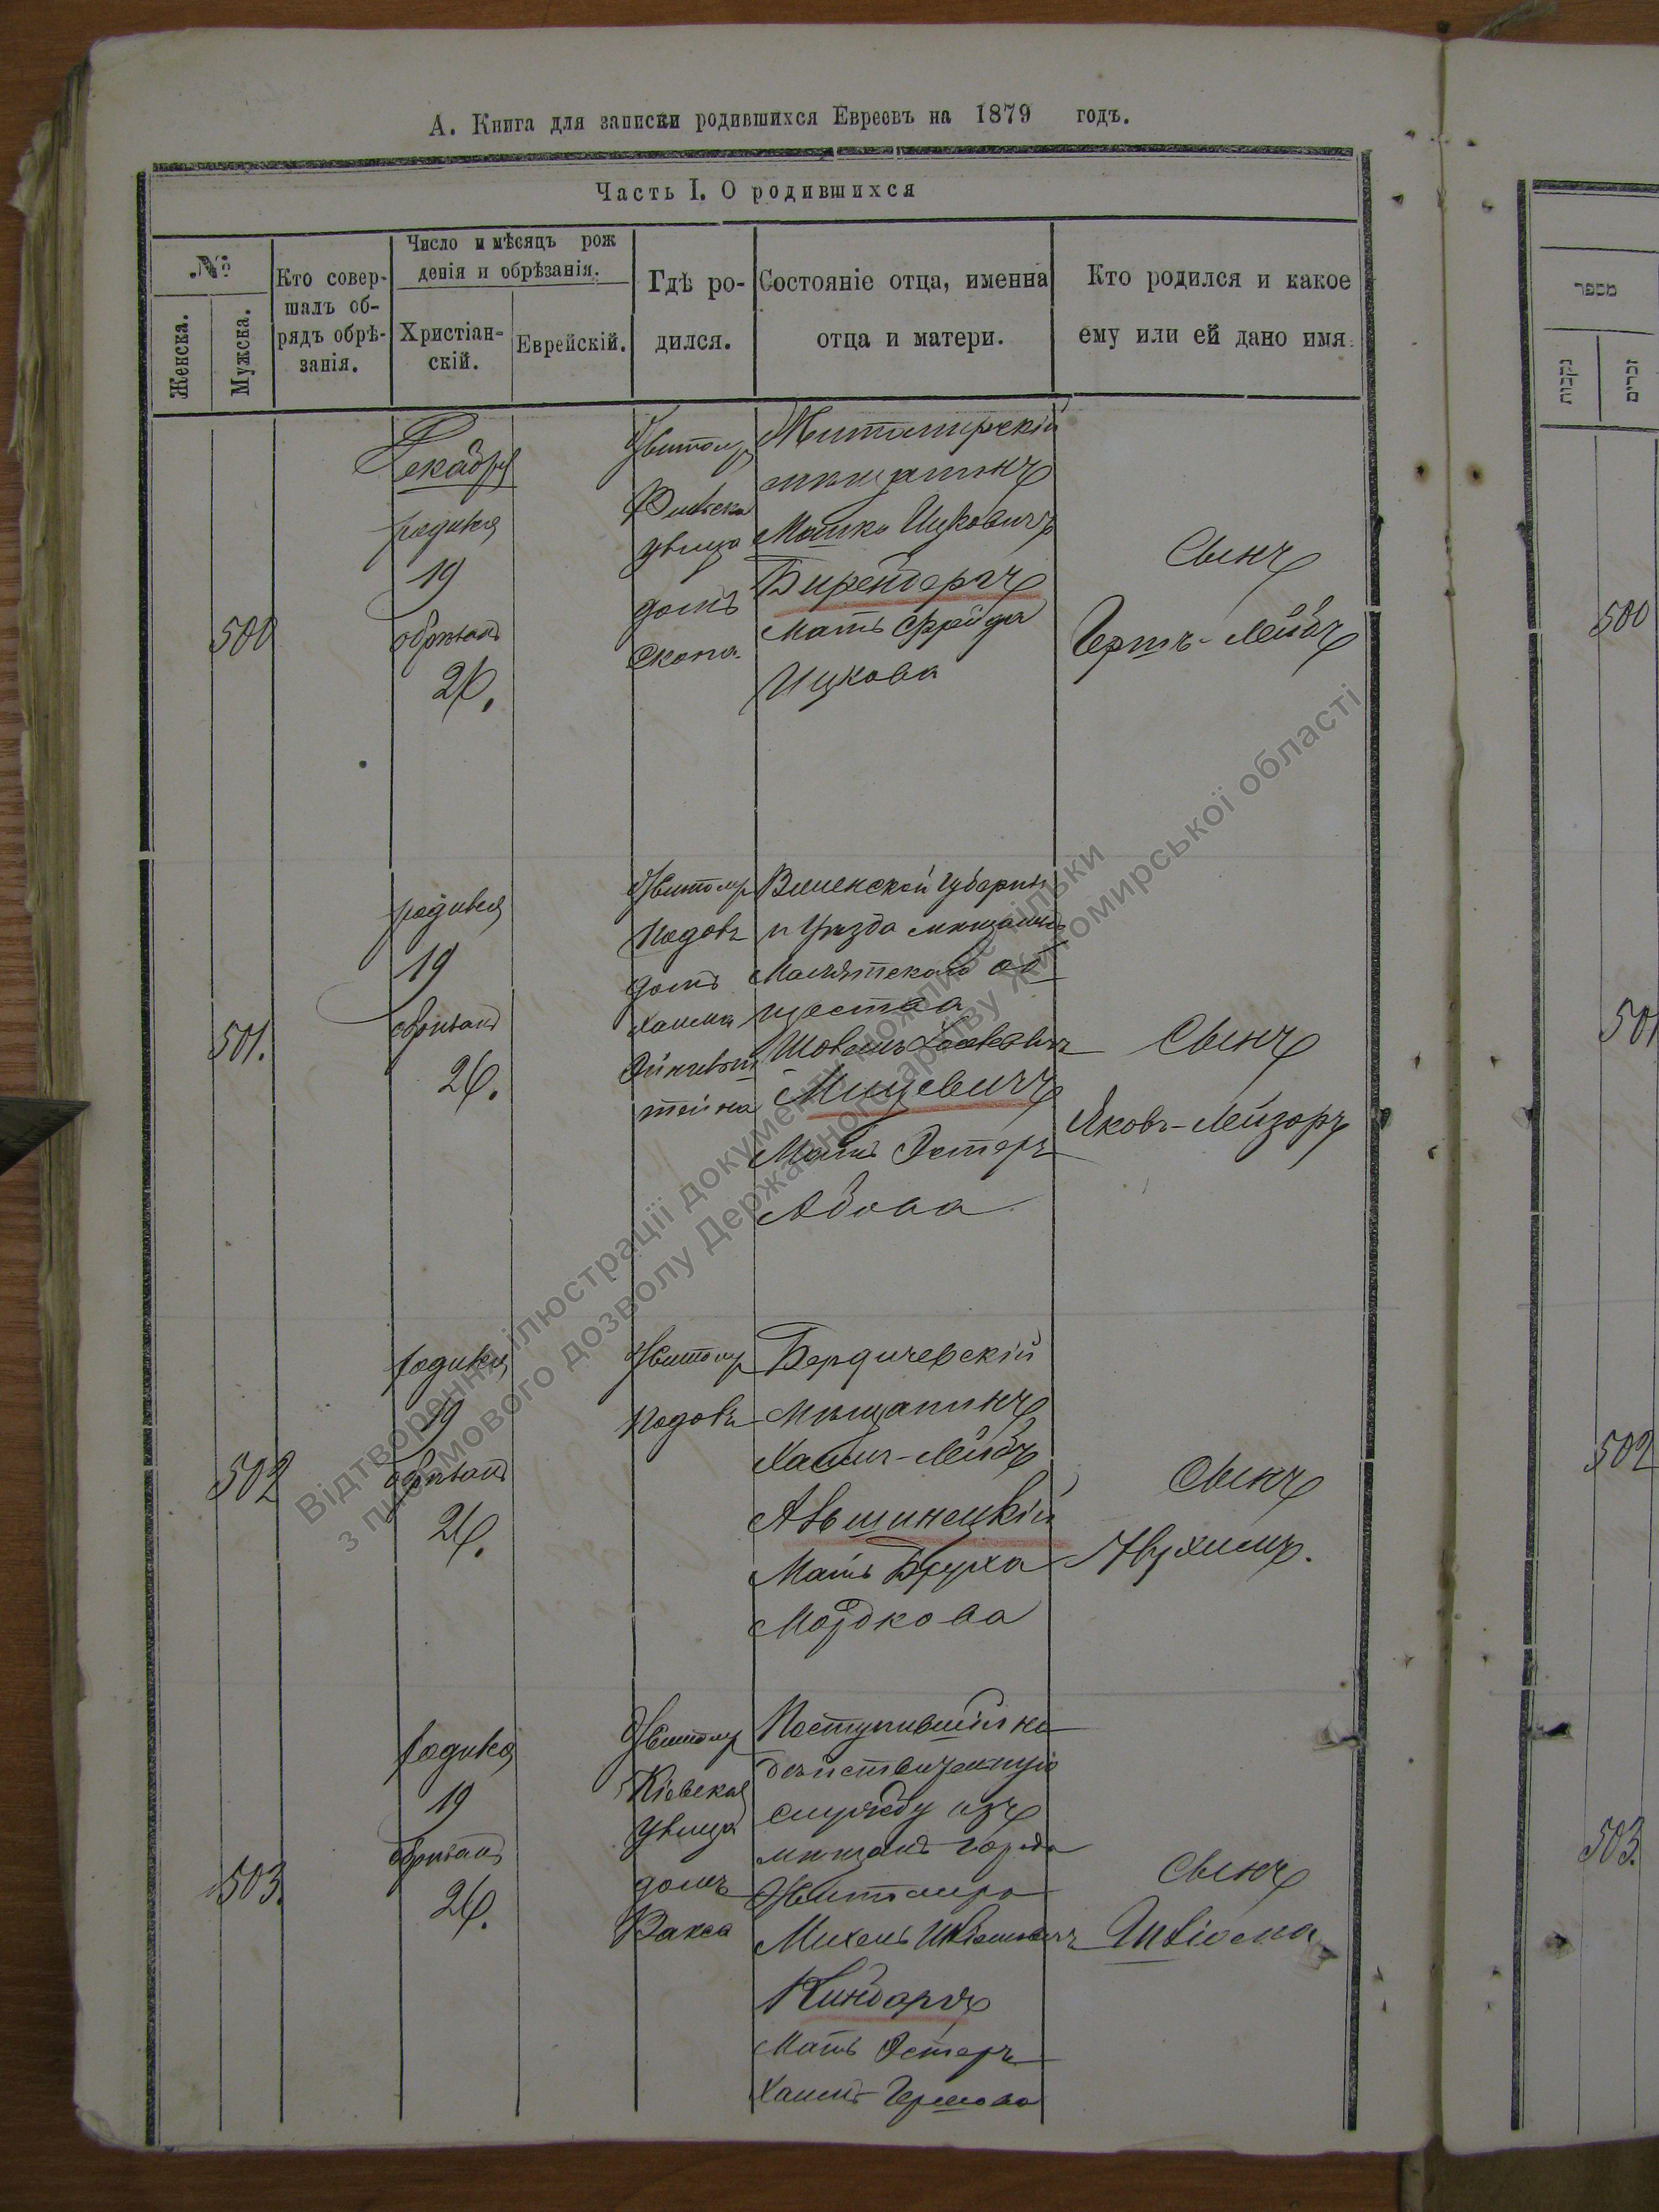 А. Книга для записки родившихся Евреевъ на 1879 годъ.
Часть I. О родившихся
№
Женска.
Мужска.
Кто совер-
шалъ об-
рядъ обрѣ-
занія.
Число и мѣсяцъ рож
денія и обрѣзанія.
Христіан-
скій.
Еврейскій.
Гдѣ ро-
дился.
Состояніе отца, именна
отца и матери.
Кто родился и какое
ему или ей дано имя.
500
Декабря
родился
19
обрѣзанъ
26.
Житомир
улица
домъ
Скопа
Житомирскій
мѣщанинъ
Мошко Ицковичъ
Бирендорфъ
Мать Фрейда
Ицкова
Сынъ
Герть-Лейбъ
501.
родился
19
обрѣзанъ
26.
Житомир
Подовъ
домъ
Хаима
тейна
Виленской Губерніи
и Уѣзда мѣщанинъ
Малятскаго об
щества
Мицевичъ
Мать Эстеръ
Абова
Сынъ
Яковъ-Лейзоръ
502
родился
19
обрѣзанъ
26.
Житомир
Подовъ
Бердичевскій
мѣщанинъ
Хаимъ-Лейбъ
Авьшинецкій
Мать Бруха
Мордкова
Сынъ
Нухимъ.
503.
родился
19
обрѣзанъ
26.
Житомир
Кіевская
улица
домъ
Вакса
Поступившій на
дѣйствительную
службу изъ
мѣщанъ города
Житомира
Михель
Киндорфъ
Мать Эстеръ
Хаимъ-Гершова
Сынъ
Шліома
מספר
נקבות
זכרים
500
501
502
503.
Відтворення ілюстрації документу можливе тільки
з письмового дозволу Державного архіву Житомирської області